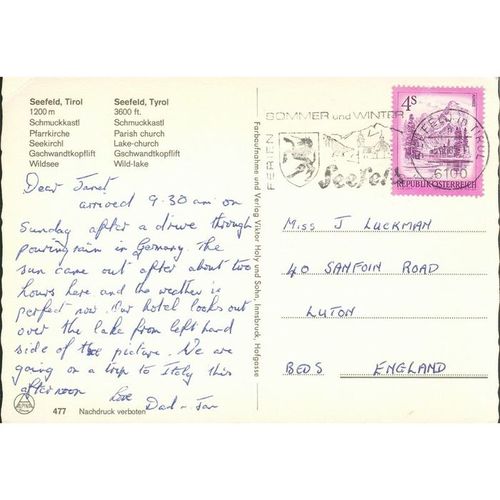 Seefeld, Tirol
1200 m
Schmuckkastl
Pfarrkirche
Seekirchl
Gschwandtkopflift
Wildsee
Seefeld, Tyrol
3600 ft.
Schmuckkastl
Parish church
Lake-church
Gschwandtkopflift
Wild-lake
Dear Janet
arrived 9.30 am on
Sunday after a drive through
pouring rain in Germany. The
sun came out after about two
hours here and the weather is
perfect now. Our hotel looks out
over the lake from left hand
side of the picture. We are
going on a trip to Italy this
afternoon
love
Dad - Jan
477 Nachdruck verboten
Farbaufnahme und Verlag Viktor Holy und Sohn, Innsbruck, Hofgasse
FERIEN
SOMMER und WINTER
Seefeld
4S
REPUBLIK ÖSTERREICH
SEEFELD in TIROL
6100
MISS J LUCKMAN
40 SANFOIN ROAD
LUTON
BEDS ENGLAND